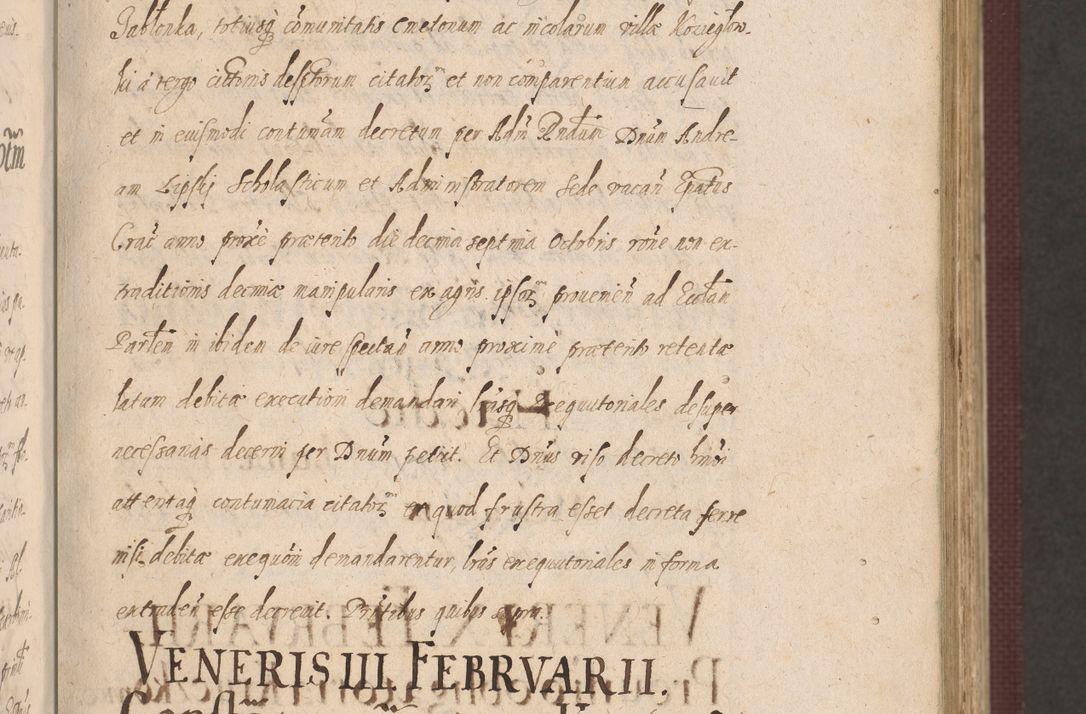 Jabłonka, totiusq̃ cõmunitatis Cmetonum ac incolarum villæ Kozieglow-
ki à tergo cittionis desptorum citator̃ et non comparentium accusavit
et in eiusmodi contumãm decretum per Adm̃ Rndum Dnum Andre-
am Lipski Scholasticum et Administratorem Sede vacan̄ Epatus
Crac̄ anno proxe præterito die decima septima Octobris rõne non ex-
traditionis decimæ manipularis ex agris ipsor̃ provenien̄ ad Ecclam
Partem in ibidem de iure spectan̄ anno proxime præterito retentæ
latum debitæ executioni demandari lrasq̃ exequutoriales desuper
necessarias decerni per Dnum petiit. Et Dnus viso decreto hmoi
attentaq̃ contumacia citator̃ ex quod frustra esset decreta ferre
nisi debitæ exequõni demandarentur, lras exequutoriales in forma
extraden̄ esse decrevit. Pntibus quibus supra.
VENERIS III. FEBRVARII.